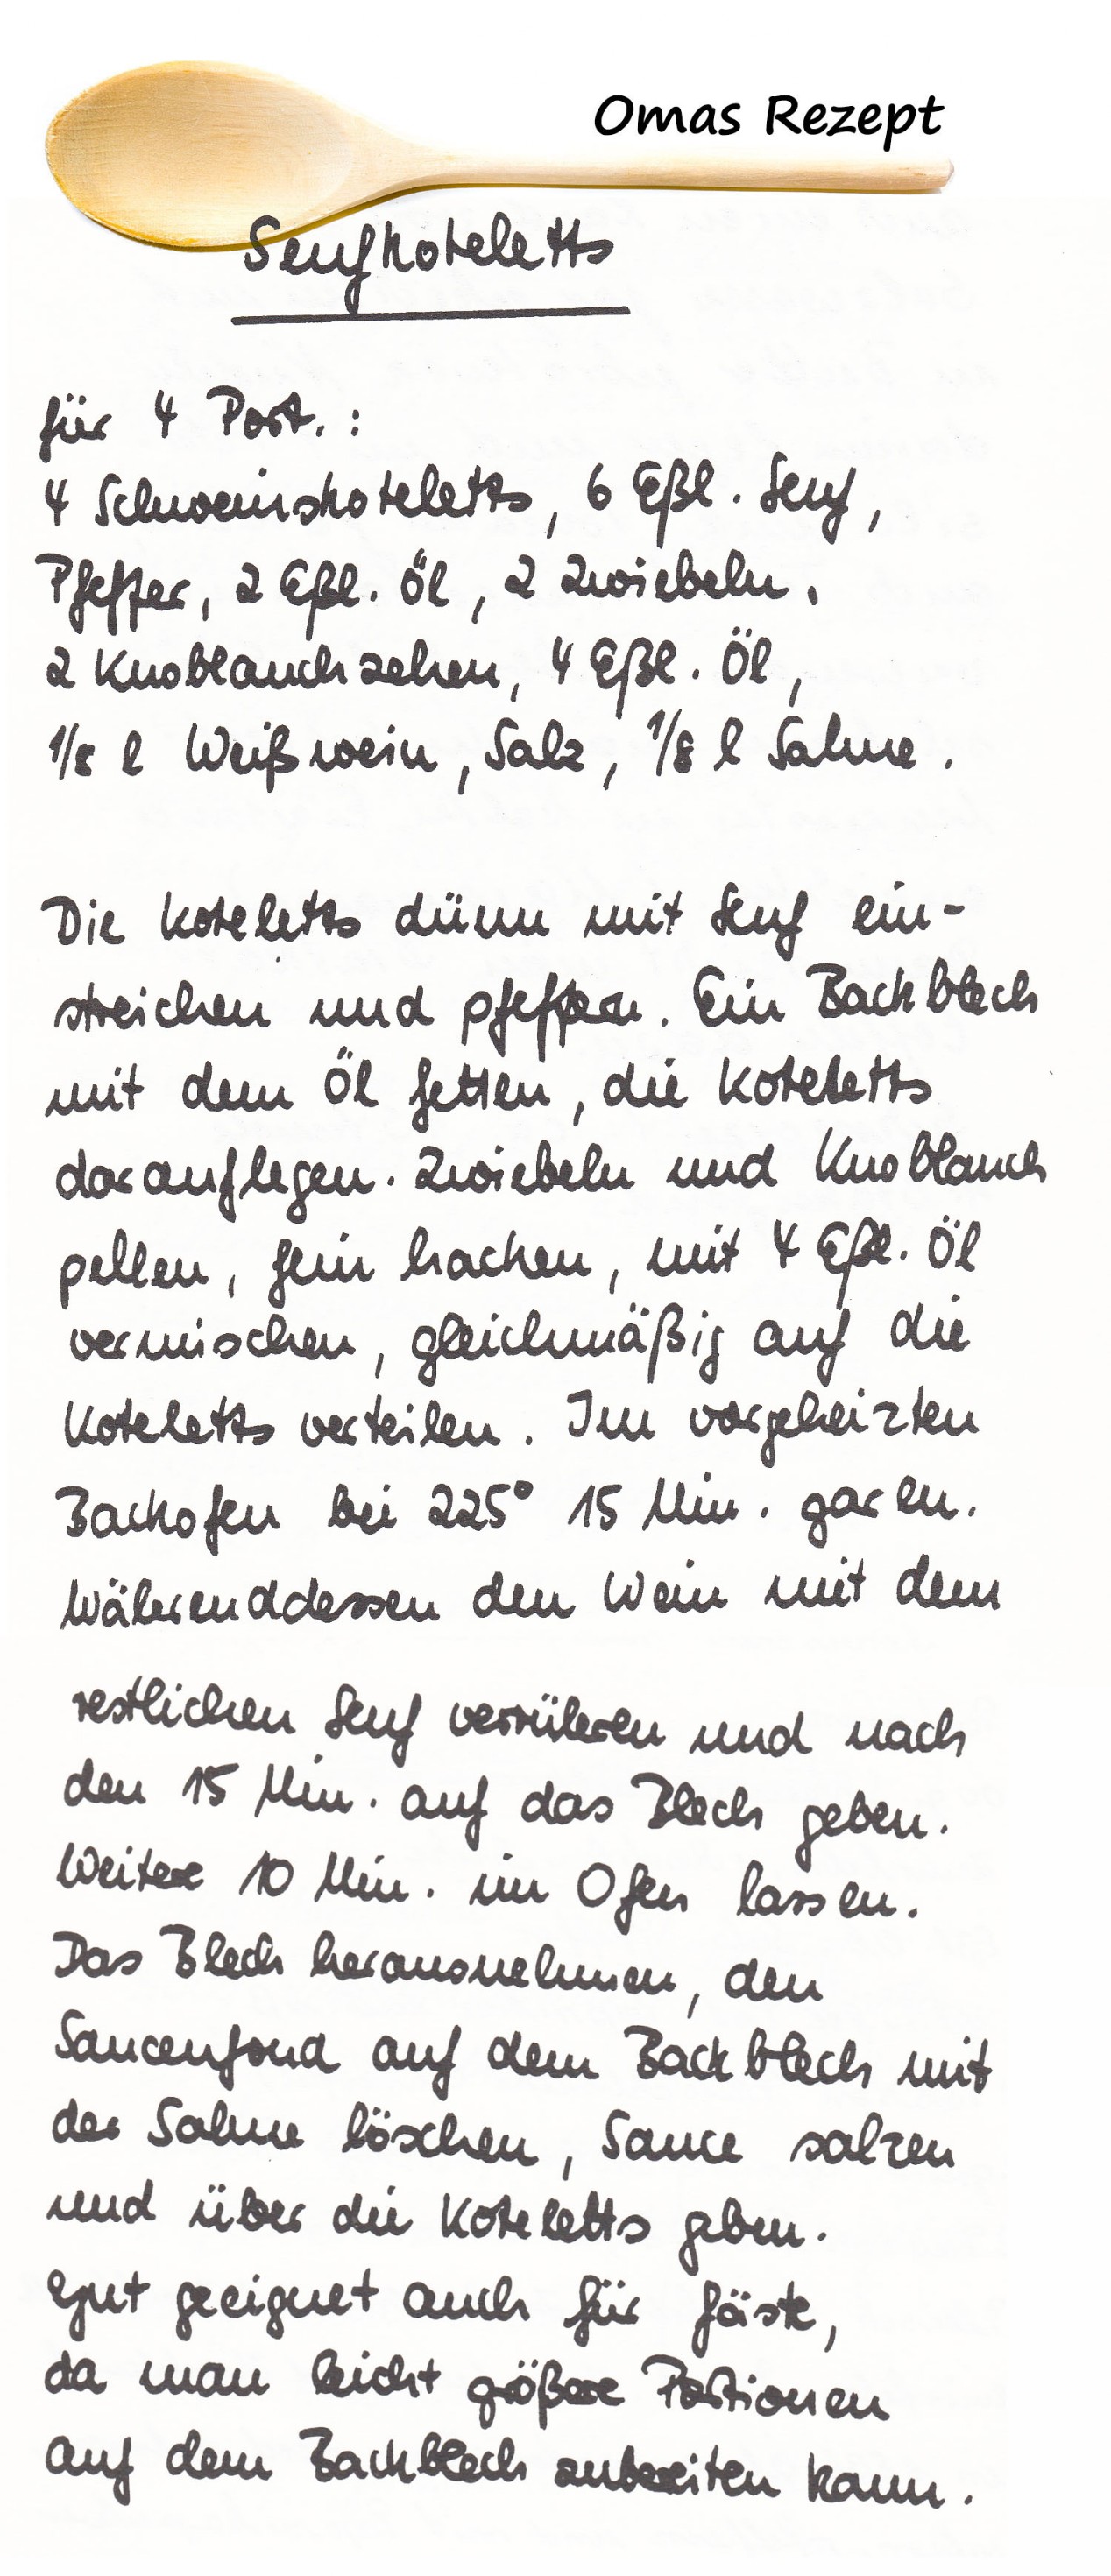 Omas Rezept
Senfkoteletts
für 4 Port.:
4 Schweinskoteletts, 6 Eßl. Senf,
Pfeffer, 2 Eßl. Öl, 2 Zwiebeln,
2 Knoblauchzehen, 4 Eßl. Öl,
1/8 l Weißwein, Salz, 1/8 l Sahne.
Die Koteletts dünn mit Senf ein-
streichen und pfeffern. Ein Backblech
mit dem Öl fetten, die Koteletts
darauflegen. Zwiebeln und Knoblauch
pellen, fein hacken, mit 4 Eßl. Öl
vermischen, gleichmäßig auf die
Koteletts verteilen. Im vorgeheizten
Backofen bei 225° 15 Min. garen.
Währenddessen den Wein mit dem
restlichen Senf verrühren und nach
den 15 Min. auf das Blech geben.
Weitere 10 Min. im Ofen lassen.
Das Blech herausnehmen, den
Saucenfond auf dem Backblech mit
der Sahne löschen, Sauce salzen
und über die Koteletts geben.
Gut geeignet auch für Gäste,
da man leicht größere Portionen
auf dem Backblech zubereiten kann.